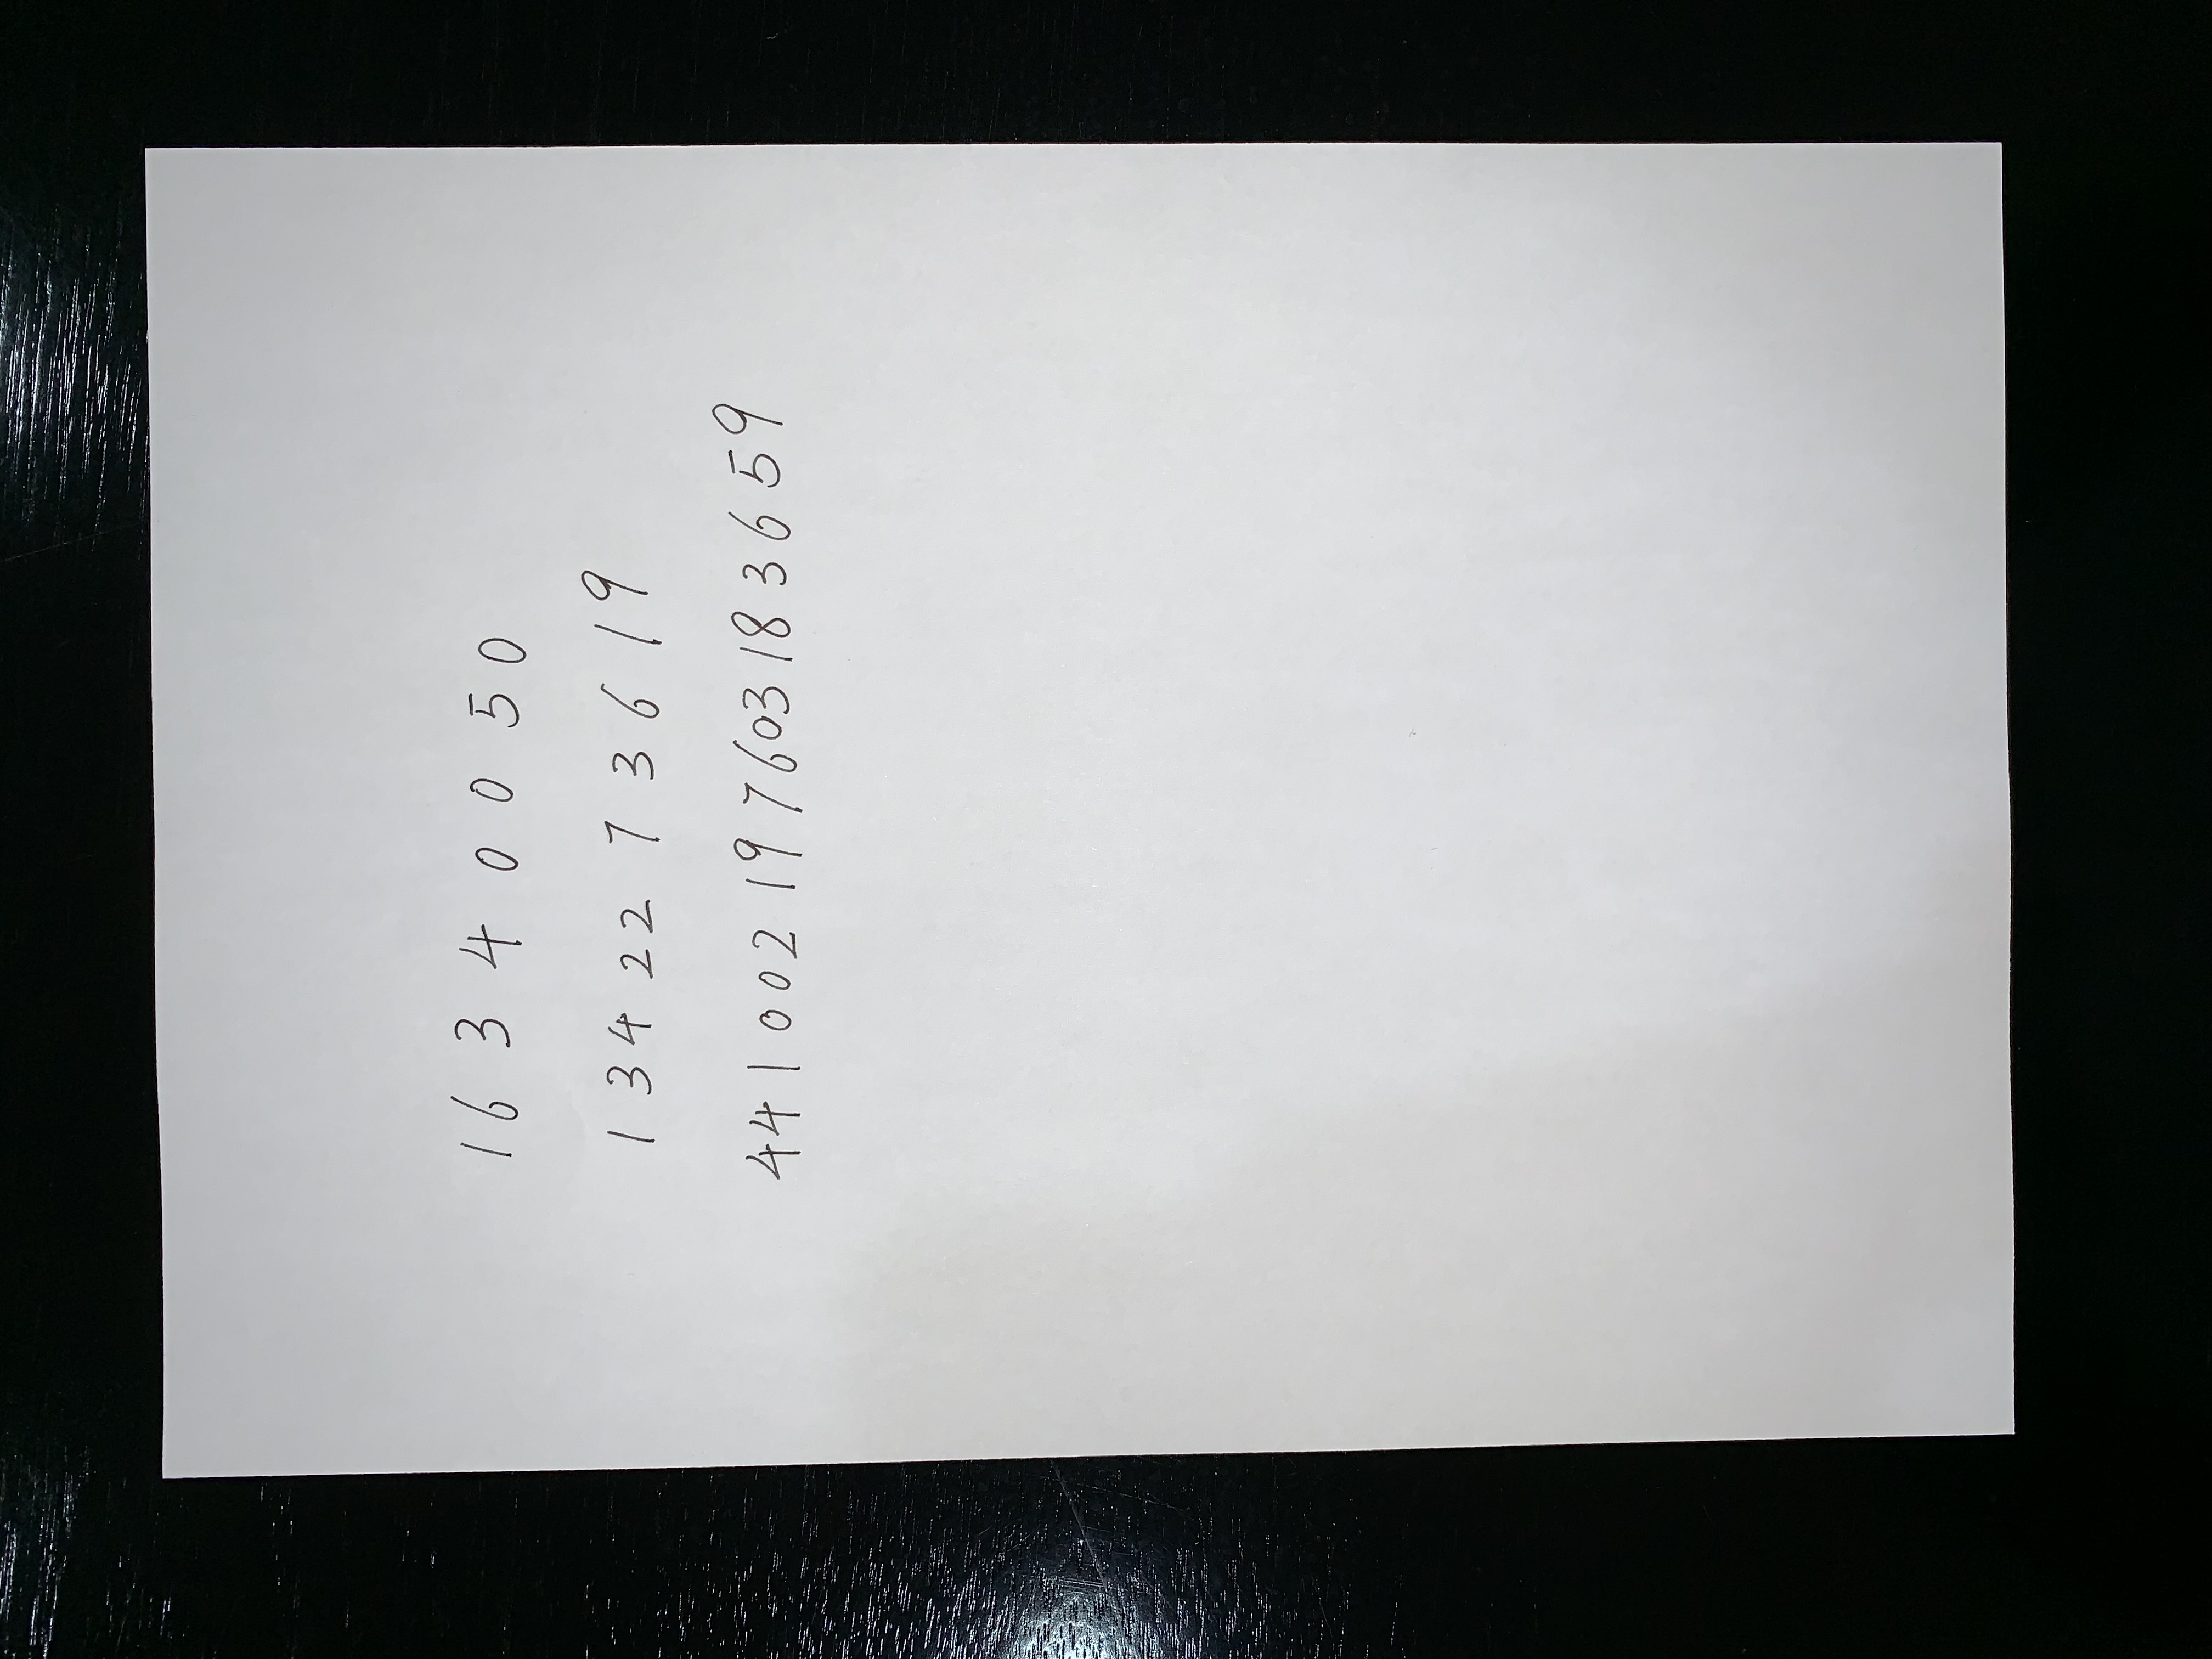 16 3 4 0 0 50
1 34 22 7 3 6 19
441002 19 7603 18 3 6 59